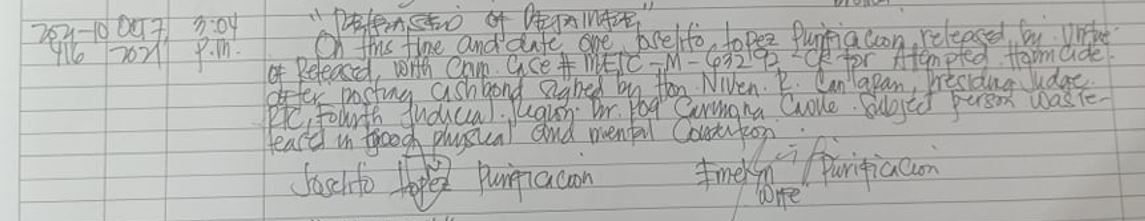 2021-10 Oct 7 3:04 "Release of Detainee"
416 2021 P.M. On this time and date one Joselito Lopez Purificacion released by virtue
of Released, with Crim. Case # METC-M-432 92-CR for Attempted Homicide.
after posting cashbond signed by Hon. Niven. R. Canlapan, Presiding Judge
RTC, Fourth Judicial Region. Br. Carmona Cavite. Subject person was re-
leased in good physical and mental Condition.
Joselito Lopez Purificacion Purificacion
Wife